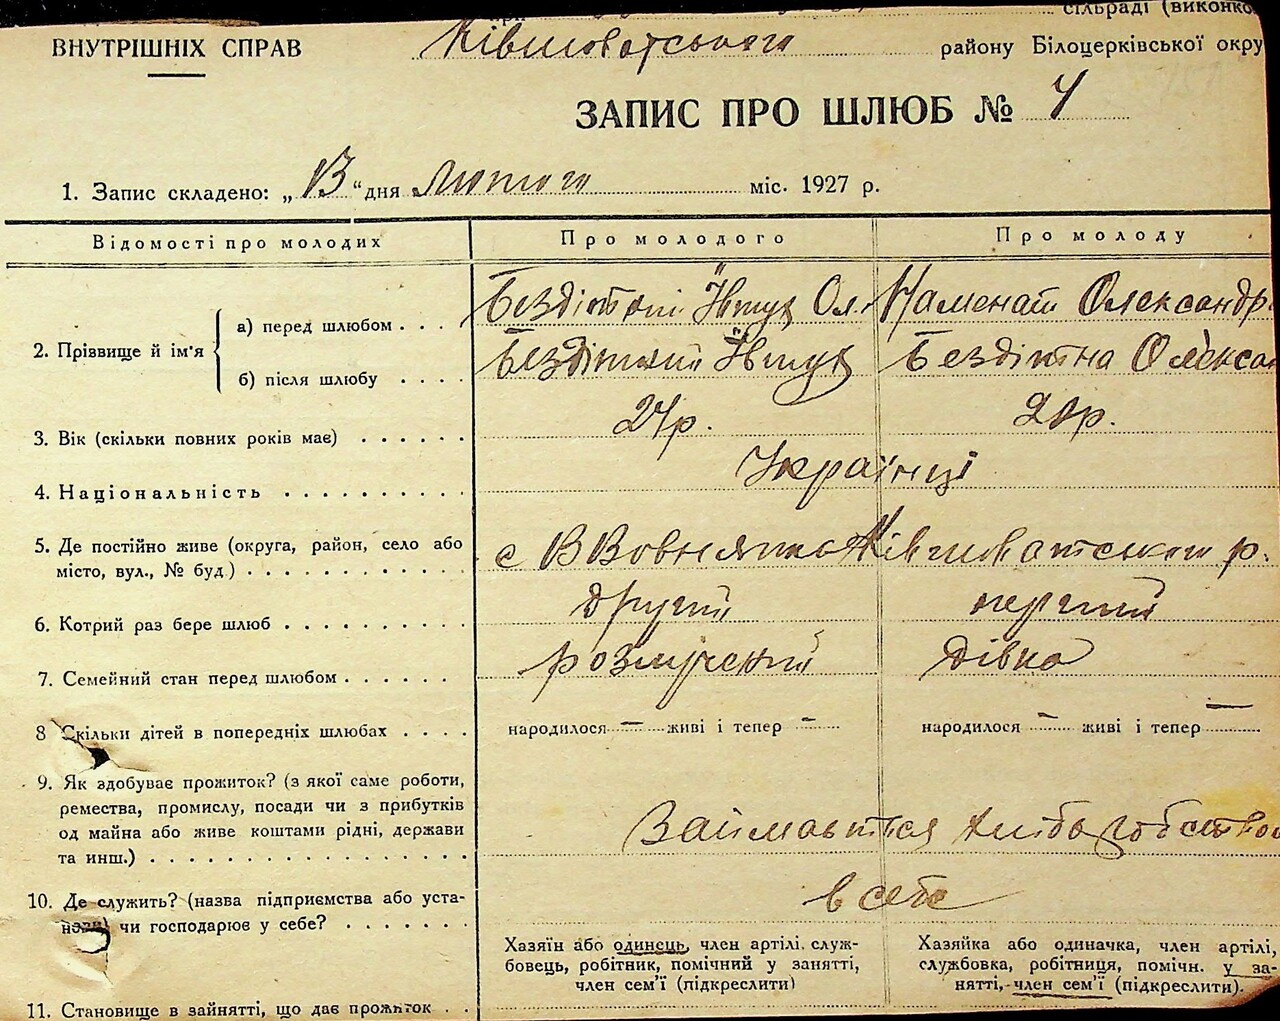 сільраді (виконко
ВНУТРІШНІХ СПРАВ Ківшоватського району Білоцерківської окру
ЗАПИС ПРО ШЛЮБ № 4
1. Запис складено: „13“ дня Лютого міс. 1927 р.
Відомості про молодих Про молодого Про молоду
2. Прізвище й ім'я
а) перед шлюбом . . . . Бездітний Ол. Олександр
б) після шлюбу . . . . Бездітний Бездітна Олекса
3. Вік (скільки повних років має) . . . . . . 24р. 20р.
4. Національність . . . . . . . . . . Українці
5. Де постійно живе (округа, район, село або
місто, вул., № буд.) . . . . . . . . . . . с В Вовнянка Ківшоватського р.
6. Котрий раз бере шлюб . . . . . . . . . . другий перший
7. Семейний стан перед шлюбом . . . . . . дівка
8 Скільки дітей в попередніх шлюбах . . . . народилося — живі і тепер — народилося — живі і тепер —
9. Як здобуває прожиток? (з якої саме роботи,
ремества, промислу, посади чи з прибутків
од майна або живе коштами рідні, держави
та инш.) . . . . . . . . . . . . . . . . Займается хліборобство
10. Де служить? (назва підприємства або уста-
нови) чи господарює у себе? . . . . . . . в себе
Хазяїн або одинець, член артілі, служ-
бовець, робітник, помічний у занятті,
член сем'ї (підкреслити)
Хазяйка або одиначка, член артілі,
службовка, робітниця, помічн. у за-
нятті, член сем'ї (підкреслити).
11. Становище в зайнятті, що дає прожиток . .